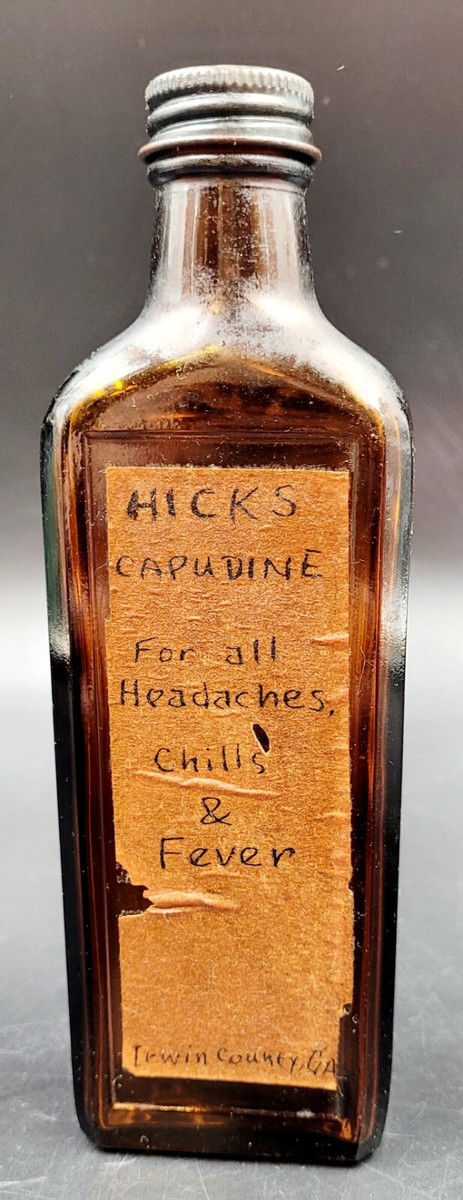 HICKS
CAPUDINE
For all
Headaches,
Chills
&
Fever
Irwin County, GA